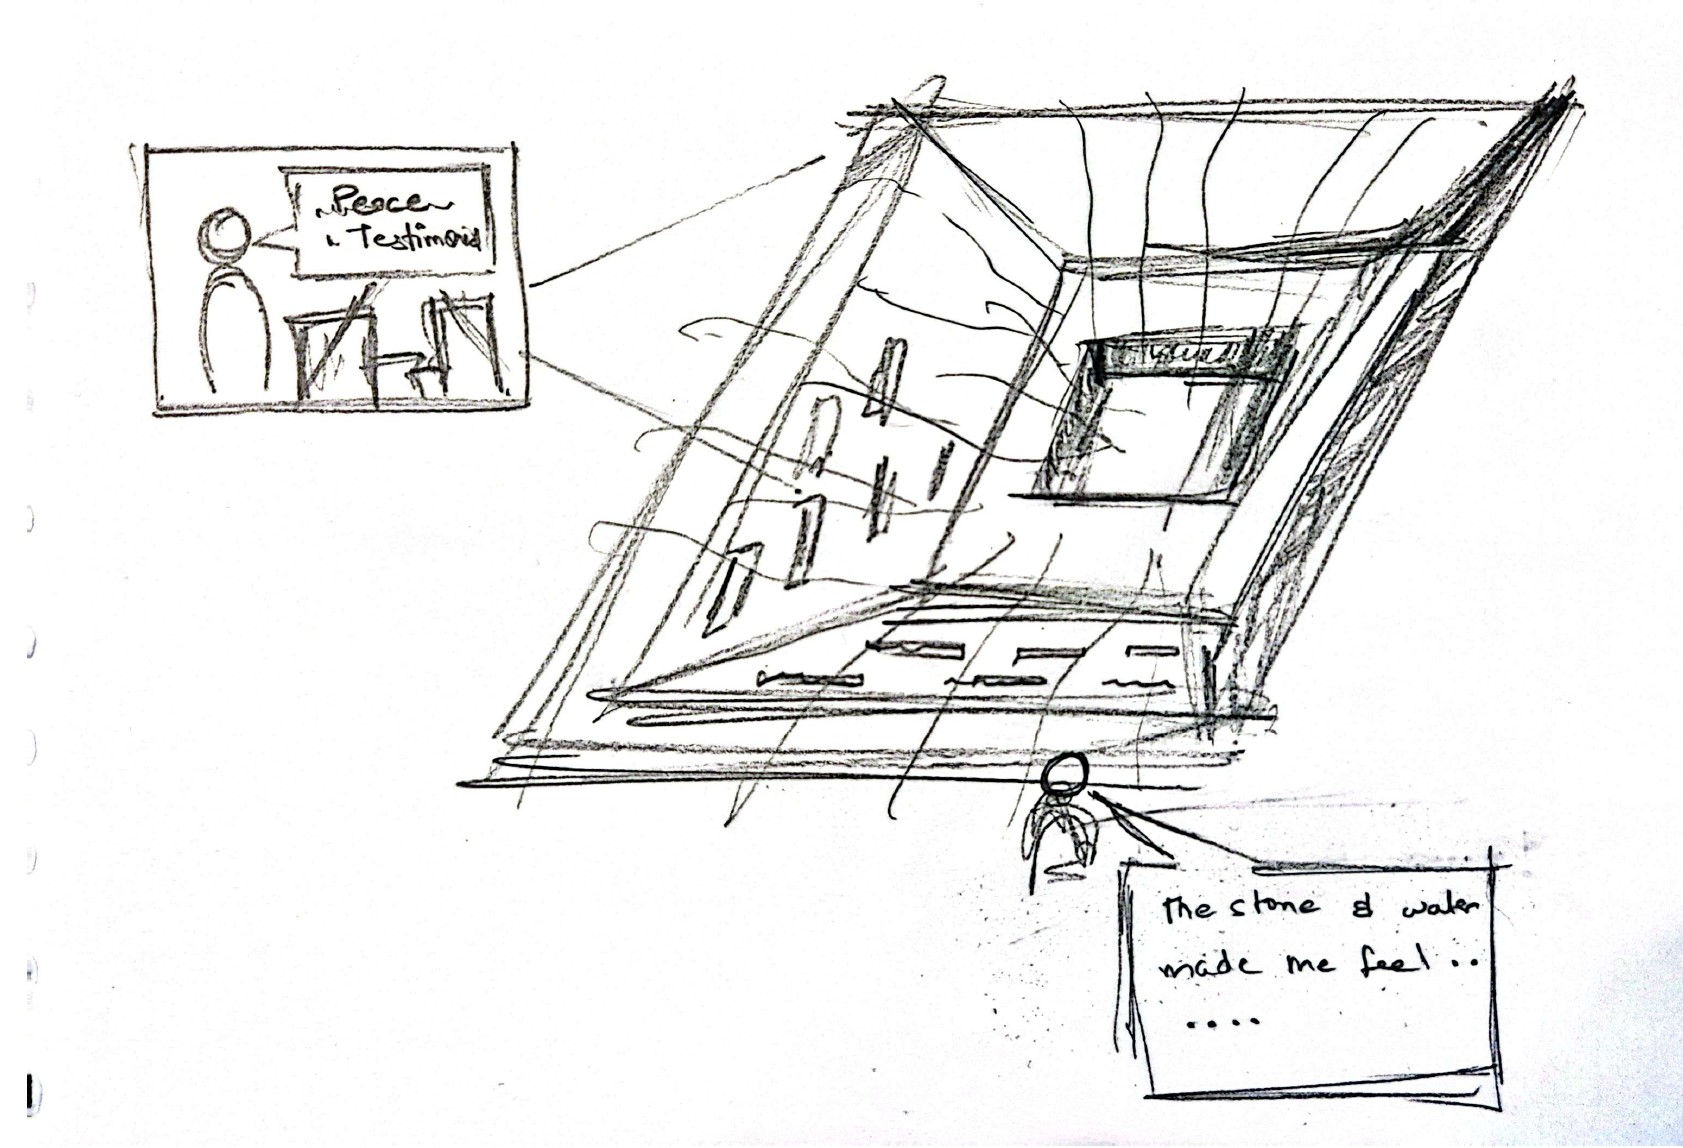 Peace
Testimonial
The stone & water
made me feel ..
....